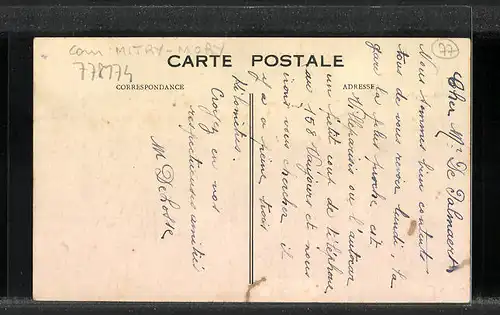 com MITRY-MORY
778174
77
CARTE POSTALE
CORRESPONDANCE
ADRESSE
Cher Mr De Palmaert
Nous sommes bien contents
tous de vous revoir lundi, la
gare la plus proche est
Villeparisis ou l'autocar
un petit coup de téléphone
au 158 Vaujours et nous
irons vous chercher il
y a à peine trois
kilomètres.
Croyez en nos
respectueuses amitiés
M Delosse